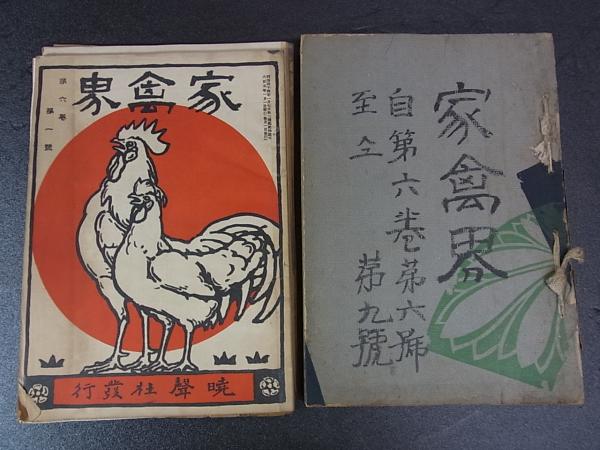 家禽界
第六卷 第一號
曉聲社發行
家禽界
自第六卷第六號
至仝 第九號